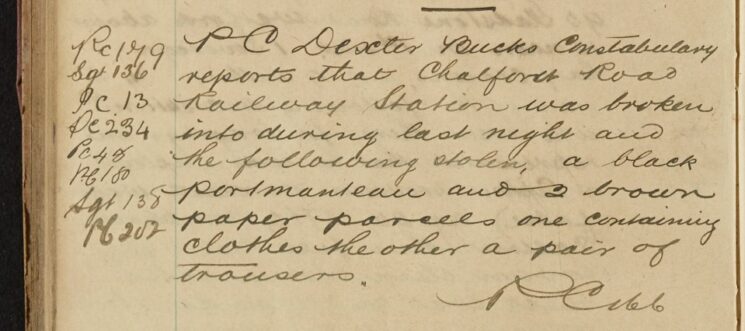 Pc 179
Sgt 136
Pc 13
Pc 234
Pc 48
Pc 180
Sgt 138
Pc 202
P C Dexter Bucks Constabulary
reports that Chalford Road
Railway Station was broken
into during last night and
the following stolen, a black
portmanteau and 2 brown
paper parcels one containing
clothes the other a pair of
trousers.